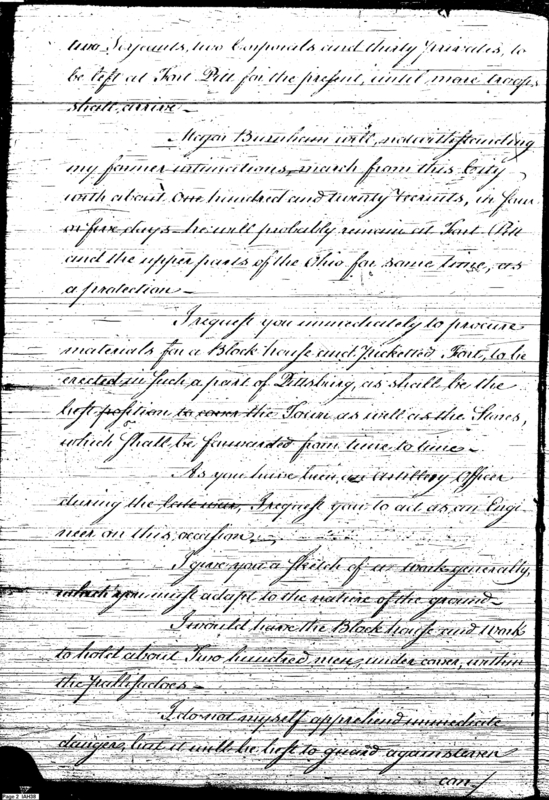 two Serjeants, two Corporals and thirty privates, to
be left at Fort Pitt for the present, until more troops
shall arrive -
Major Burnham will, notwithstanding
my former intimations, march from this City
with about One hundred and twenty recruits, in four
or five days - he will probably remain at Fort Pitt
and the upper parts of the Ohio for some time, as
a protection -
I request you immediately to procure
materials for a Block house and Picketted Fort, to be
erected in such a part of Pittsburg, as shall be the
best position to cover the Town as well as the Stores,
which shall be forwarded from time to time -
As you have been an Artillery Officer
during the late war, I request you to act as an Engi
neer on this occasion.
I give you a sketch of a work generally,
which you must adapt to the nature of the ground -
I would have the Block house and Work
to hold about Two hundred men, under cover, within
the pallisadoes -
I do not myself apprehend immediate
danger, but it will be best to guard against
can
Page 2 JAH38